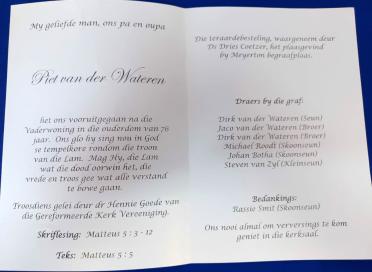 My geliefde man, ons pa en oupa
Piet van der Wateren
het ons vooruitgegaan na die
Vaderwoning in die ouderdom van 76
jaar. Ons glo hy sing nou in God
se tempelkore rondom die troon
van die Lam. Mag Hy, die Lam
wat die dood oorwin het, die
vrede en troos gee wat alle verstand
te bowe gaan.
Troosdiens gelei deur dr Hennie Goede van
die Gereformeerde Kerk Vereeniging.
Skriflesing: Matteus 5 : 3 - 12
Teks: Matteus 5 : 5
Die teraardebestelling, waargeneem deur
Ds Dries Coetzer, het plaasgevind
by Meyerton begraafplaas.
Draers by die graf:
Dirk van der Wateren (Seun)
Jaco van der Wateren (Broer)
Dirk van der Wateren (Broer)
Michael Roodt (Skoonseun)
Johan Botha (Skoonseun)
Steven van Zyl (Kleinseun)
Bedankings:
Rassie Smit (Skoonseun)
Ons nooi almal om verversings te kom
geniet in die kerksaal.